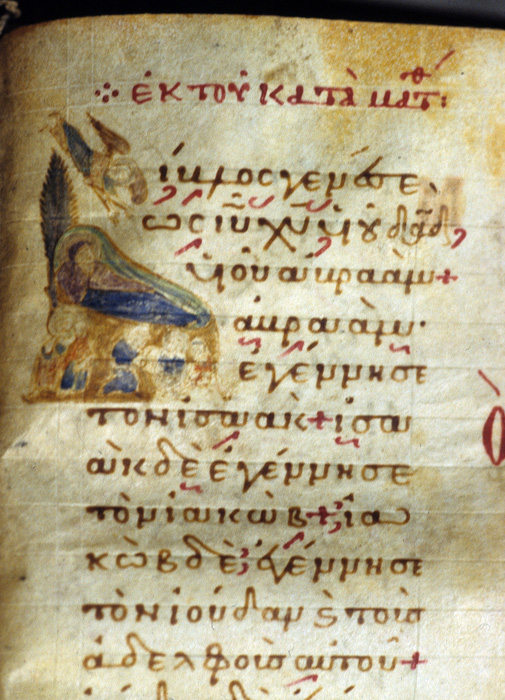 ⁘ ἐκ τοῦ κατὰ ματθ:
ίβλος γενέσε
ως ἰῦ χῦ ὑιοῦ δᾱδ,
ὑιοῦ ἀβραὰμ+
ἀβραὰμ·
ἐγέννησε
τὸν ἰσαὰκ+ ἰσα
ὰκ δὲ ἐγέννησε
τὸν ἰακὼβ+ ἰα
κὼβ δὲ, ἐγέννησε
τὸν ἰούδαν ϗ τοὺσ
ἀδελφοὺσ αὐτοῦ+